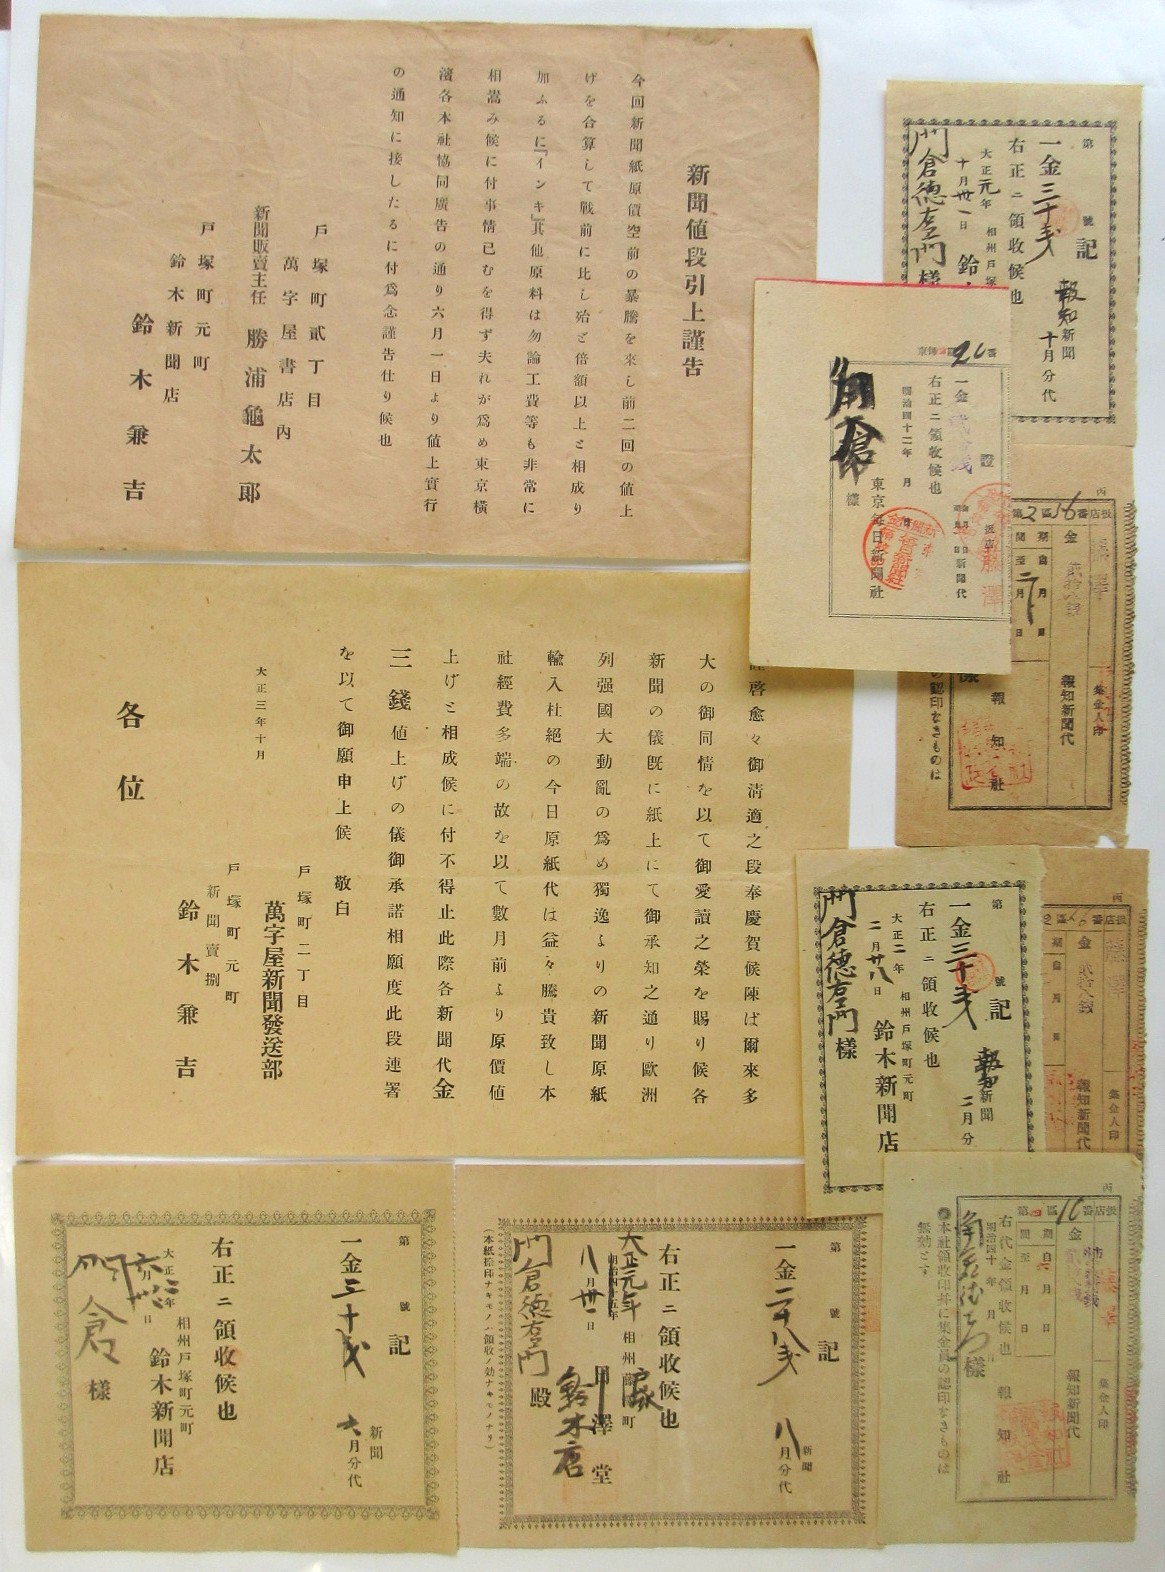 新聞値段引上謹告
今回新聞紙原價空前の暴騰を來し前二回の値上
げを合算して戰前に比し殆ど倍額以上と相成り
加ふるに「インキ」其他原料は勿論工費等も非常に
相嵩み候に付事情已むを得ず夫れが爲め東京横
濱各本社協同廣告の通り六月一日より値上實行
の通知に接したるに付爲念謹告仕り候也
戸塚町貳丁目
萬字屋書店内
新聞販賣主任 勝浦龜太郎
戸塚町元町
鈴木新聞店
鈴木兼吉
啓愈々御淸適之段奉慶賀候陳ば爾來多
大の御同情を以て御愛讀之榮を賜り候各
新聞の儀既に紙上にて御承知之通り歐洲
列强國大動亂の爲め獨逸よりの新聞原紙
輸入杜絕の今日原紙代は益々騰貴致し本
社經費多端の故を以て數月前より原價値
上げと相成候に付不得止此際各新聞代金
三錢値上げの儀御承諾相願度此段連署
を以て御願申上候 敬白
大正三年十月
戸塚町二丁目
萬字屋新聞發送部
戸塚町元町
新聞賣捌
鈴木兼吉
各位
第 號
記
報知新聞 十月分代
一金三十戋
右正ニ領收候也
大正元年
十月卅一日
相州戸塚
鈴
門倉德左衛門樣
證
一金
右正ニ領收候也
明治四十二年 月 日
東京每日新聞社
角倉樣
丙
扱店
金 貳拾八錢
報知新聞代
集金人印
報知社
の認印なきものは
第 號
記
報知新聞 二月分
一金三十戋
右正ニ領收候也
大正二年
二月廿八日
相州戸塚町元町
鈴木新聞店
門倉德左衛門樣
丙
扱店
金 貳拾八錢
報知新聞代
集金人印
第 號
記
新聞 六月分代
一金三十戋
右正ニ領收候也
大正二年
六月 日
相州戸塚町元町
鈴木新聞店
門倉樣
第 號
記
新聞 八月分代
一金二十八戋
右正ニ領收候也
明治四十五年
大正元年
八月卅一日
相州 町
澤堂
鈴木店
門倉德左衛門殿
(本紙捺印ナキモノハ領收ノ効ナキモノナリ)
丙
扱店
金
報知新聞代
集金人印
右代金領收候也
明治四十 年 月 日
報知社
樣
●本社領收印幷に集金員の認印なきものは
無効とす